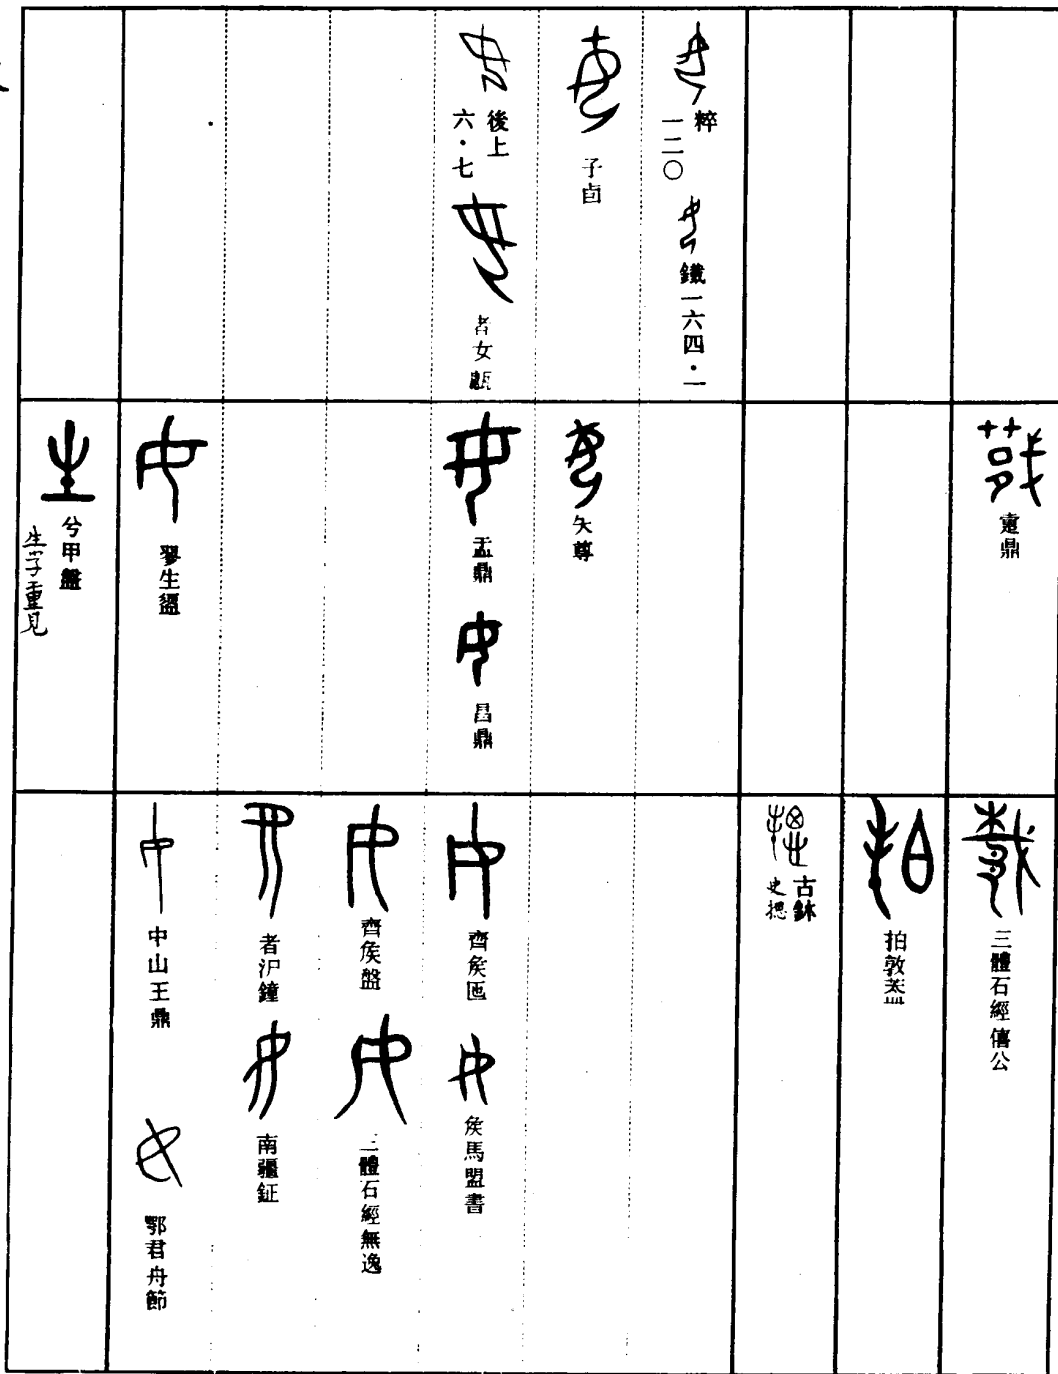 粹
一二〇
鐵一六四·一
子卣
後上
六·七
者女甗
壴鼎
夨尊
盂鼎
曶鼎
翏生盨
兮甲盤
生字重見
三體石經僖公
拍敦蓋
古鉥
史𢛳
齊矦匜
矦馬盟書
齊矦盤
三體石經無逸
者沪鐘
南疆鉦
中山王鼎
鄂君舟節